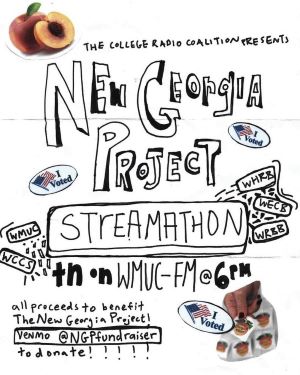 THE COLLEGE RADIO COALITION PRESENTS
NEW GEORGIA
PROJECT
I Voted
I Voted
WHRB
WECB
WRBB
STREAMATHON
WMUC
WCCS
tn on WMUC-FM @ 6pm
all proceeds to benefit
The New Georgia Project!
VENMO @NGPfundraiser
to donate! ! ! ! !
I Voted